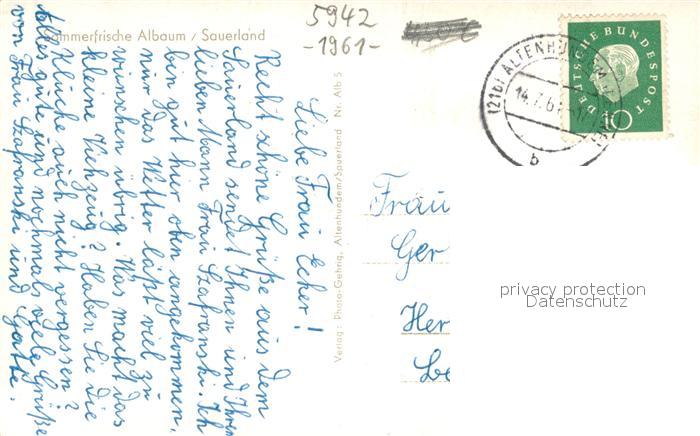 Sommerfrische Albaum / Sauerland
5942
-1961-
(21b) ALTENHUNDEM
14.7.61
b
DEUTSCHE BUNDESPOST
10
Liebe Frau Echer!
Recht schöne Grüße aus dem
Sauerland sendet Ihnen und Ihren
lieben Mann Frau Szafranski. Ich
bin gut hier oben angekommen,
nur das Wetter läßt viel zu
wünschen übrig. Was macht das
kleine Viehzeug? Haben Sie die
Klucke auch nicht vergessen?
Alles gute und nochmals viele Grüße
von Frau Szafranski und Gatte.
Verlag: Photo-Gehrig, Altenhundem/Sauerland Nr. Alb 5
Frau
Ger
Her
privacy protection
Datenschutz